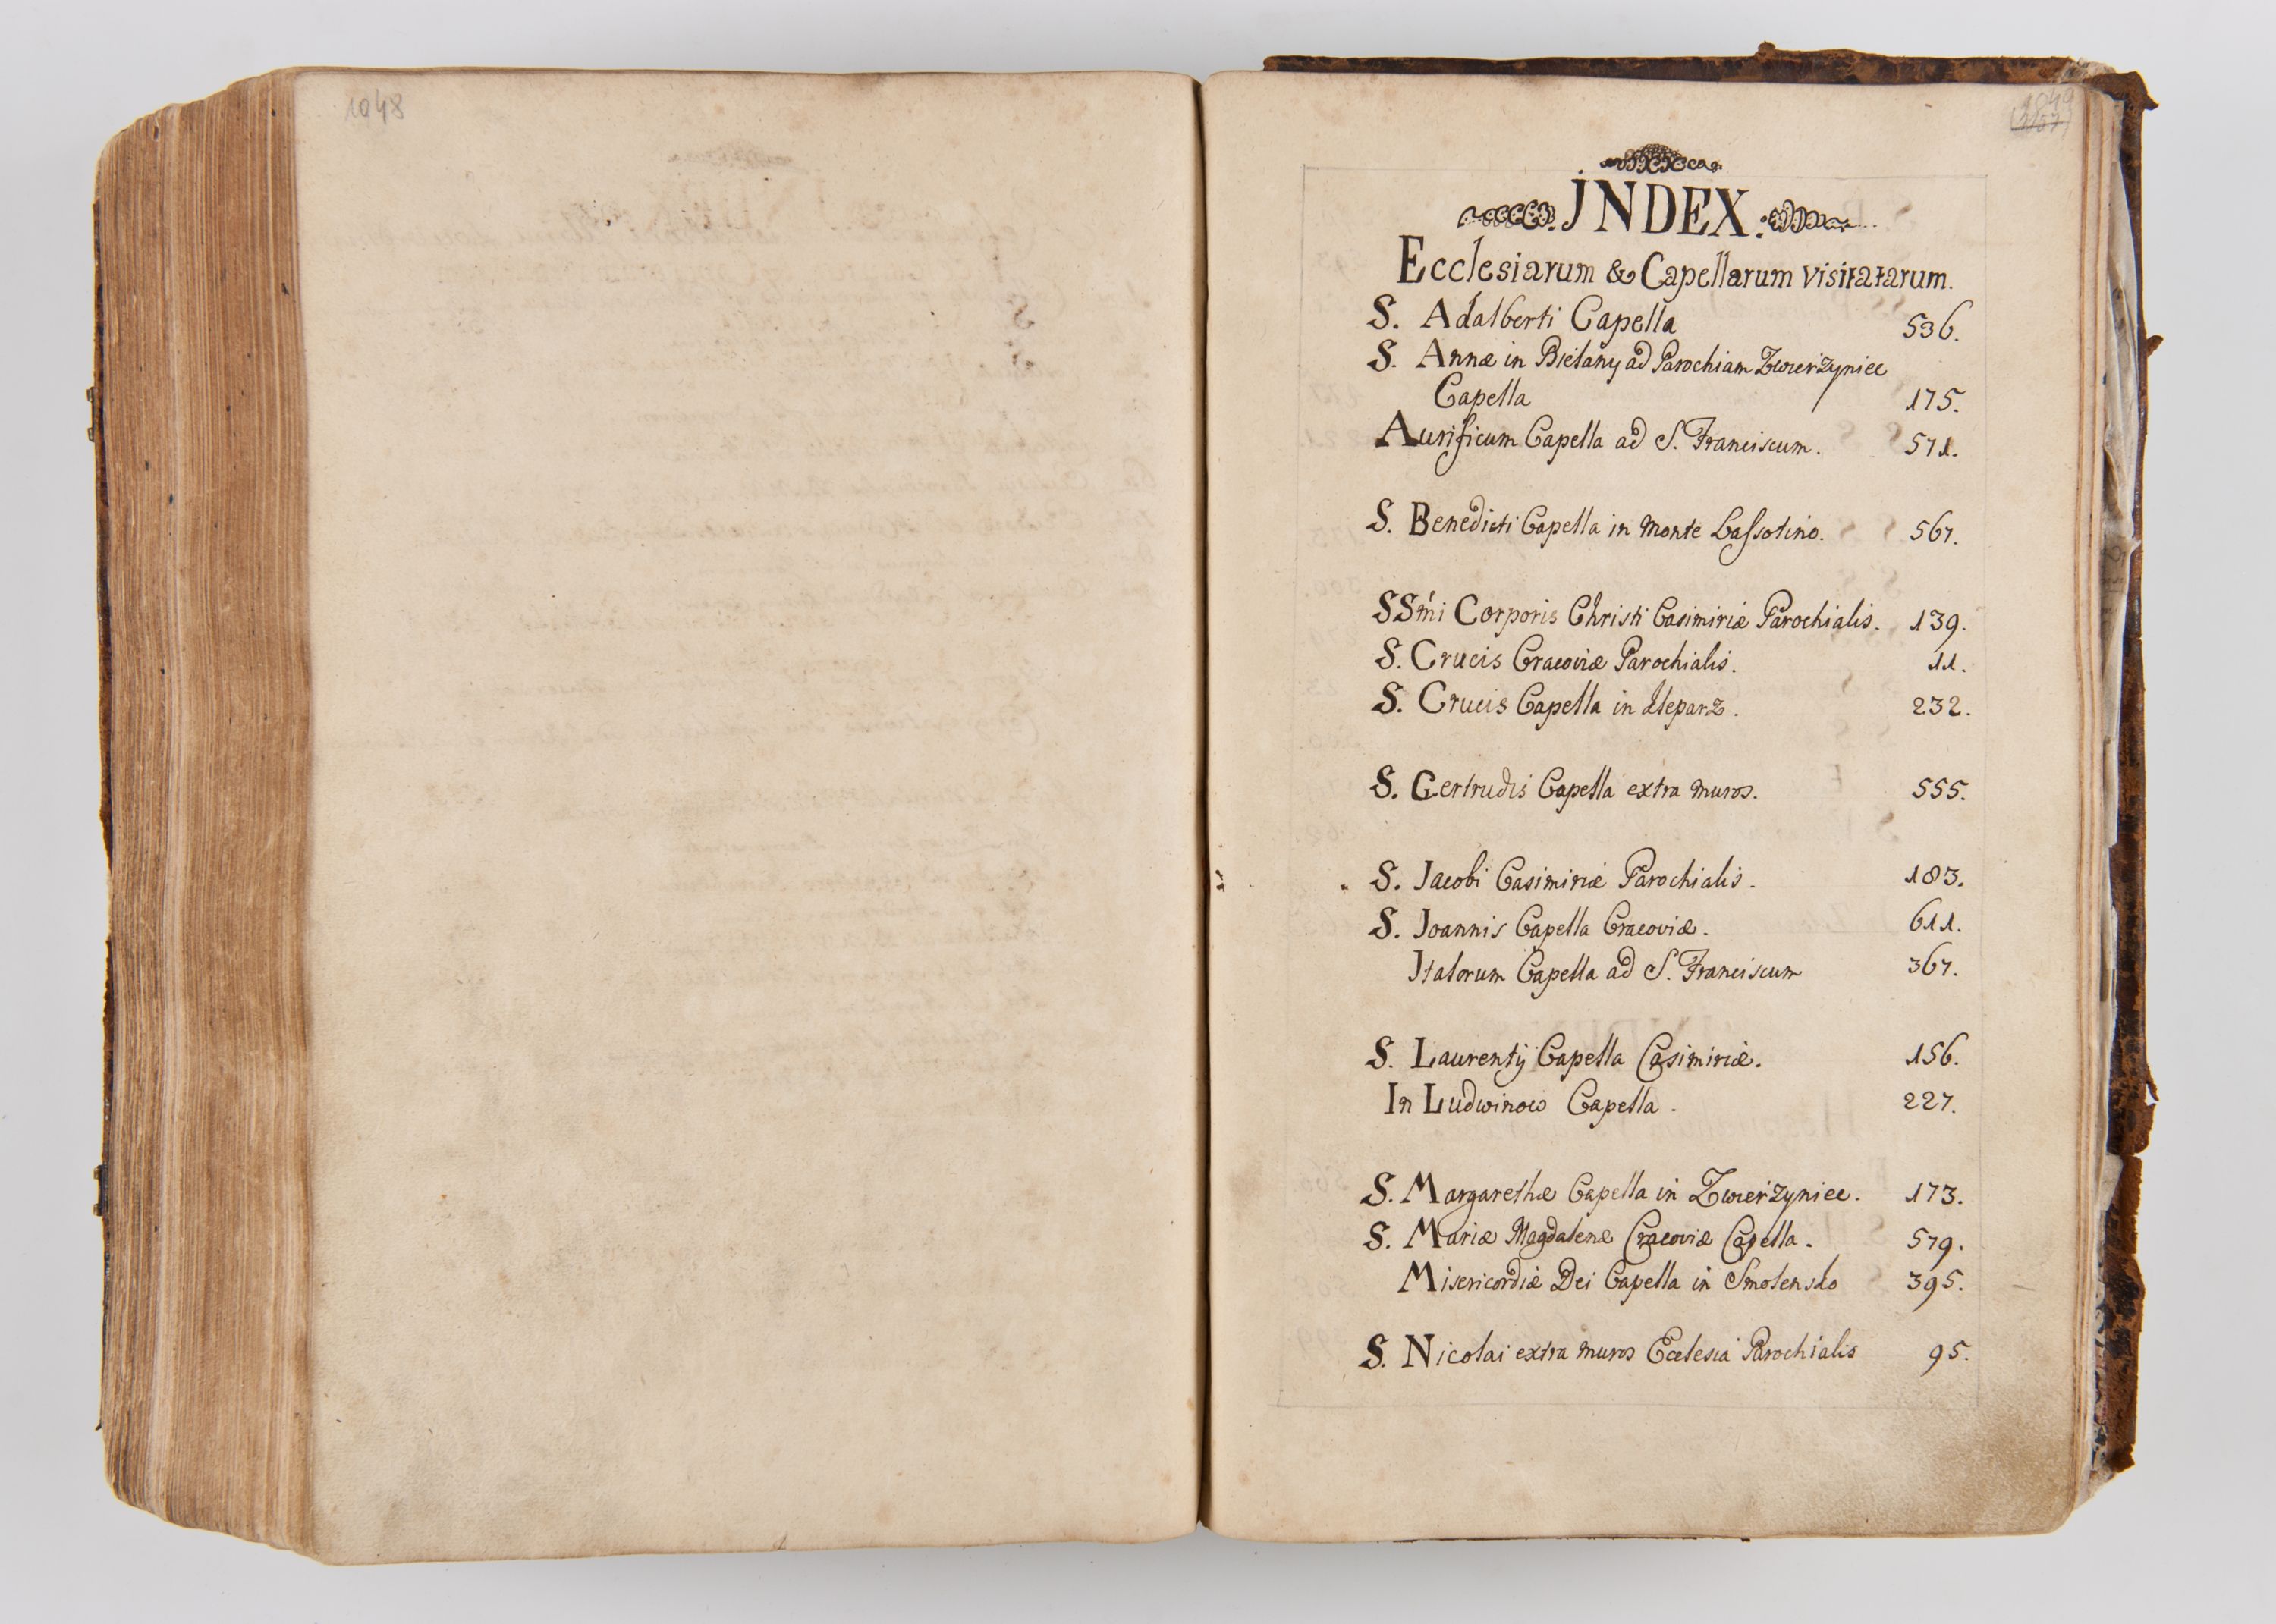 1048
1049
INDEX.
Ecclesiarum & Capellarum visitatarum.
S. Adalberti Capella 536.
S. Annæ in Bielany ad Parochiam Zwierzyniec
Capella 175.
Aurificum Capella ad S. Franciscum. 571.
S. Benedicti Capella in Monte Lassotino. 567.
SSm̃i Corporis Christi Casimiriæ Parochialis. 139.
S. Crucis Cracoviæ Parochialis. 11.
S. Crucis Capella in Kleparz. 232.
S. Gertrudis Capella extra muros. 555.
S. Jacobi Casimiriæ Parochialis. 183.
S. Joannis Capella Cracoviæ. 611.
Italorum Capella ad S. Franciscum 367.
S. Laurentij Capella Casimiriæ. 156.
In Ludwinow Capella. 227.
S. Margarethæ Capella in Zwierzyniec. 173.
S. Mariæ Magdalenæ Cracoviæ Capella. 579.
Misericordiæ Dei Capella in Smolensko 395.
S. Nicolai extra muros Ecclesia Parochialis 95.